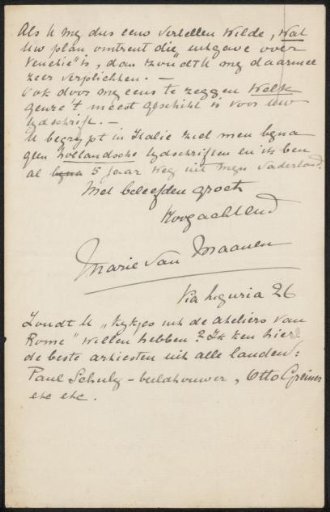 Als U mij dus eens vertellen wilde, wat
Uw plan omtrent die "uitgave over
Venetie" is, dan zoudt U mij daarmee
zeer verplichten. —
Ook door mij eens te zeggen welk
genre 't meest geschikt is voor Uw
tijdschrift. —
U begrijpt in Italie ziet men bijna
geen hollandsche tijdschriften en ik ben
al bijna 5 jaar weg uit mijn Vaderland.
Met beleefden groet
Hoogachtend
Marie van Maanen
Via Liguria 26
Zoudt U "Kijkjes in de ateliers van
Rome" willen hebben? Ik ken hier
de beste artiesten uit alle landen:
Paul Schulz - beeldhouwer, Otto Greiner
etc etc.